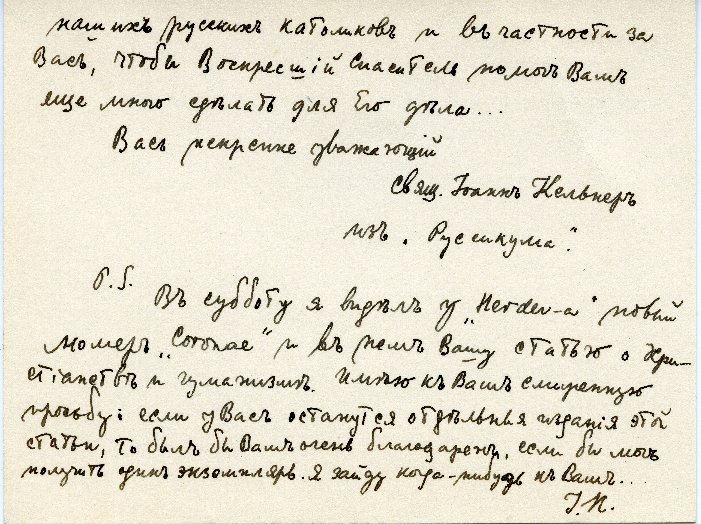 нашихъ русскихъ католиковъ и въ частности за
Васъ, чтобы Воскресшій Спаситель помогъ Вамъ
еще много сдѣлать для Его дѣла...
Васъ искренне уважающій
свящ. Іоаннъ Кельнеръ
изъ „Руссикума".
P.S.
Въ субботу я видѣлъ у „Herder-а" новый
номеръ „Согопае" и въ немъ Вашу статью о Хри-
стіанствѣ и гуманизмѣ. Имѣю къ Вамъ смиренную
просьбу: если у Васъ останутся отдѣльныя изданія этой
статьи, то былъ бы Вамъ очень благодаренъ, если бы могъ
получить одинъ экземпляръ. Я зайду когда-нибудь къ Вамъ...
І.К.